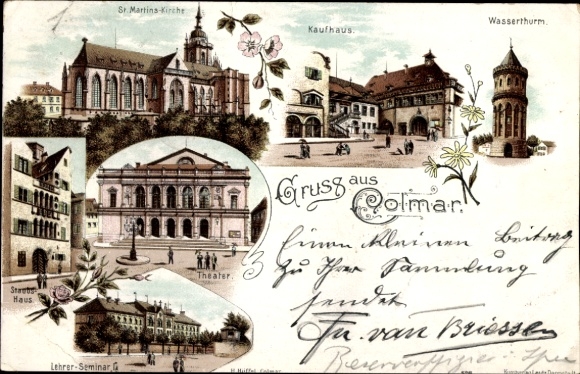 St. Martins-Kirche
Kaufhaus.
Wasserthurm.
Gruss aus
Colmar.
Staubs-
Haus
Theater.
Lehrer-Seminar
Einen kleinen Beitrag
zu Ihrer Sammlung
sendet
Fr. van Briessen
H. Hüffel, Colmar.